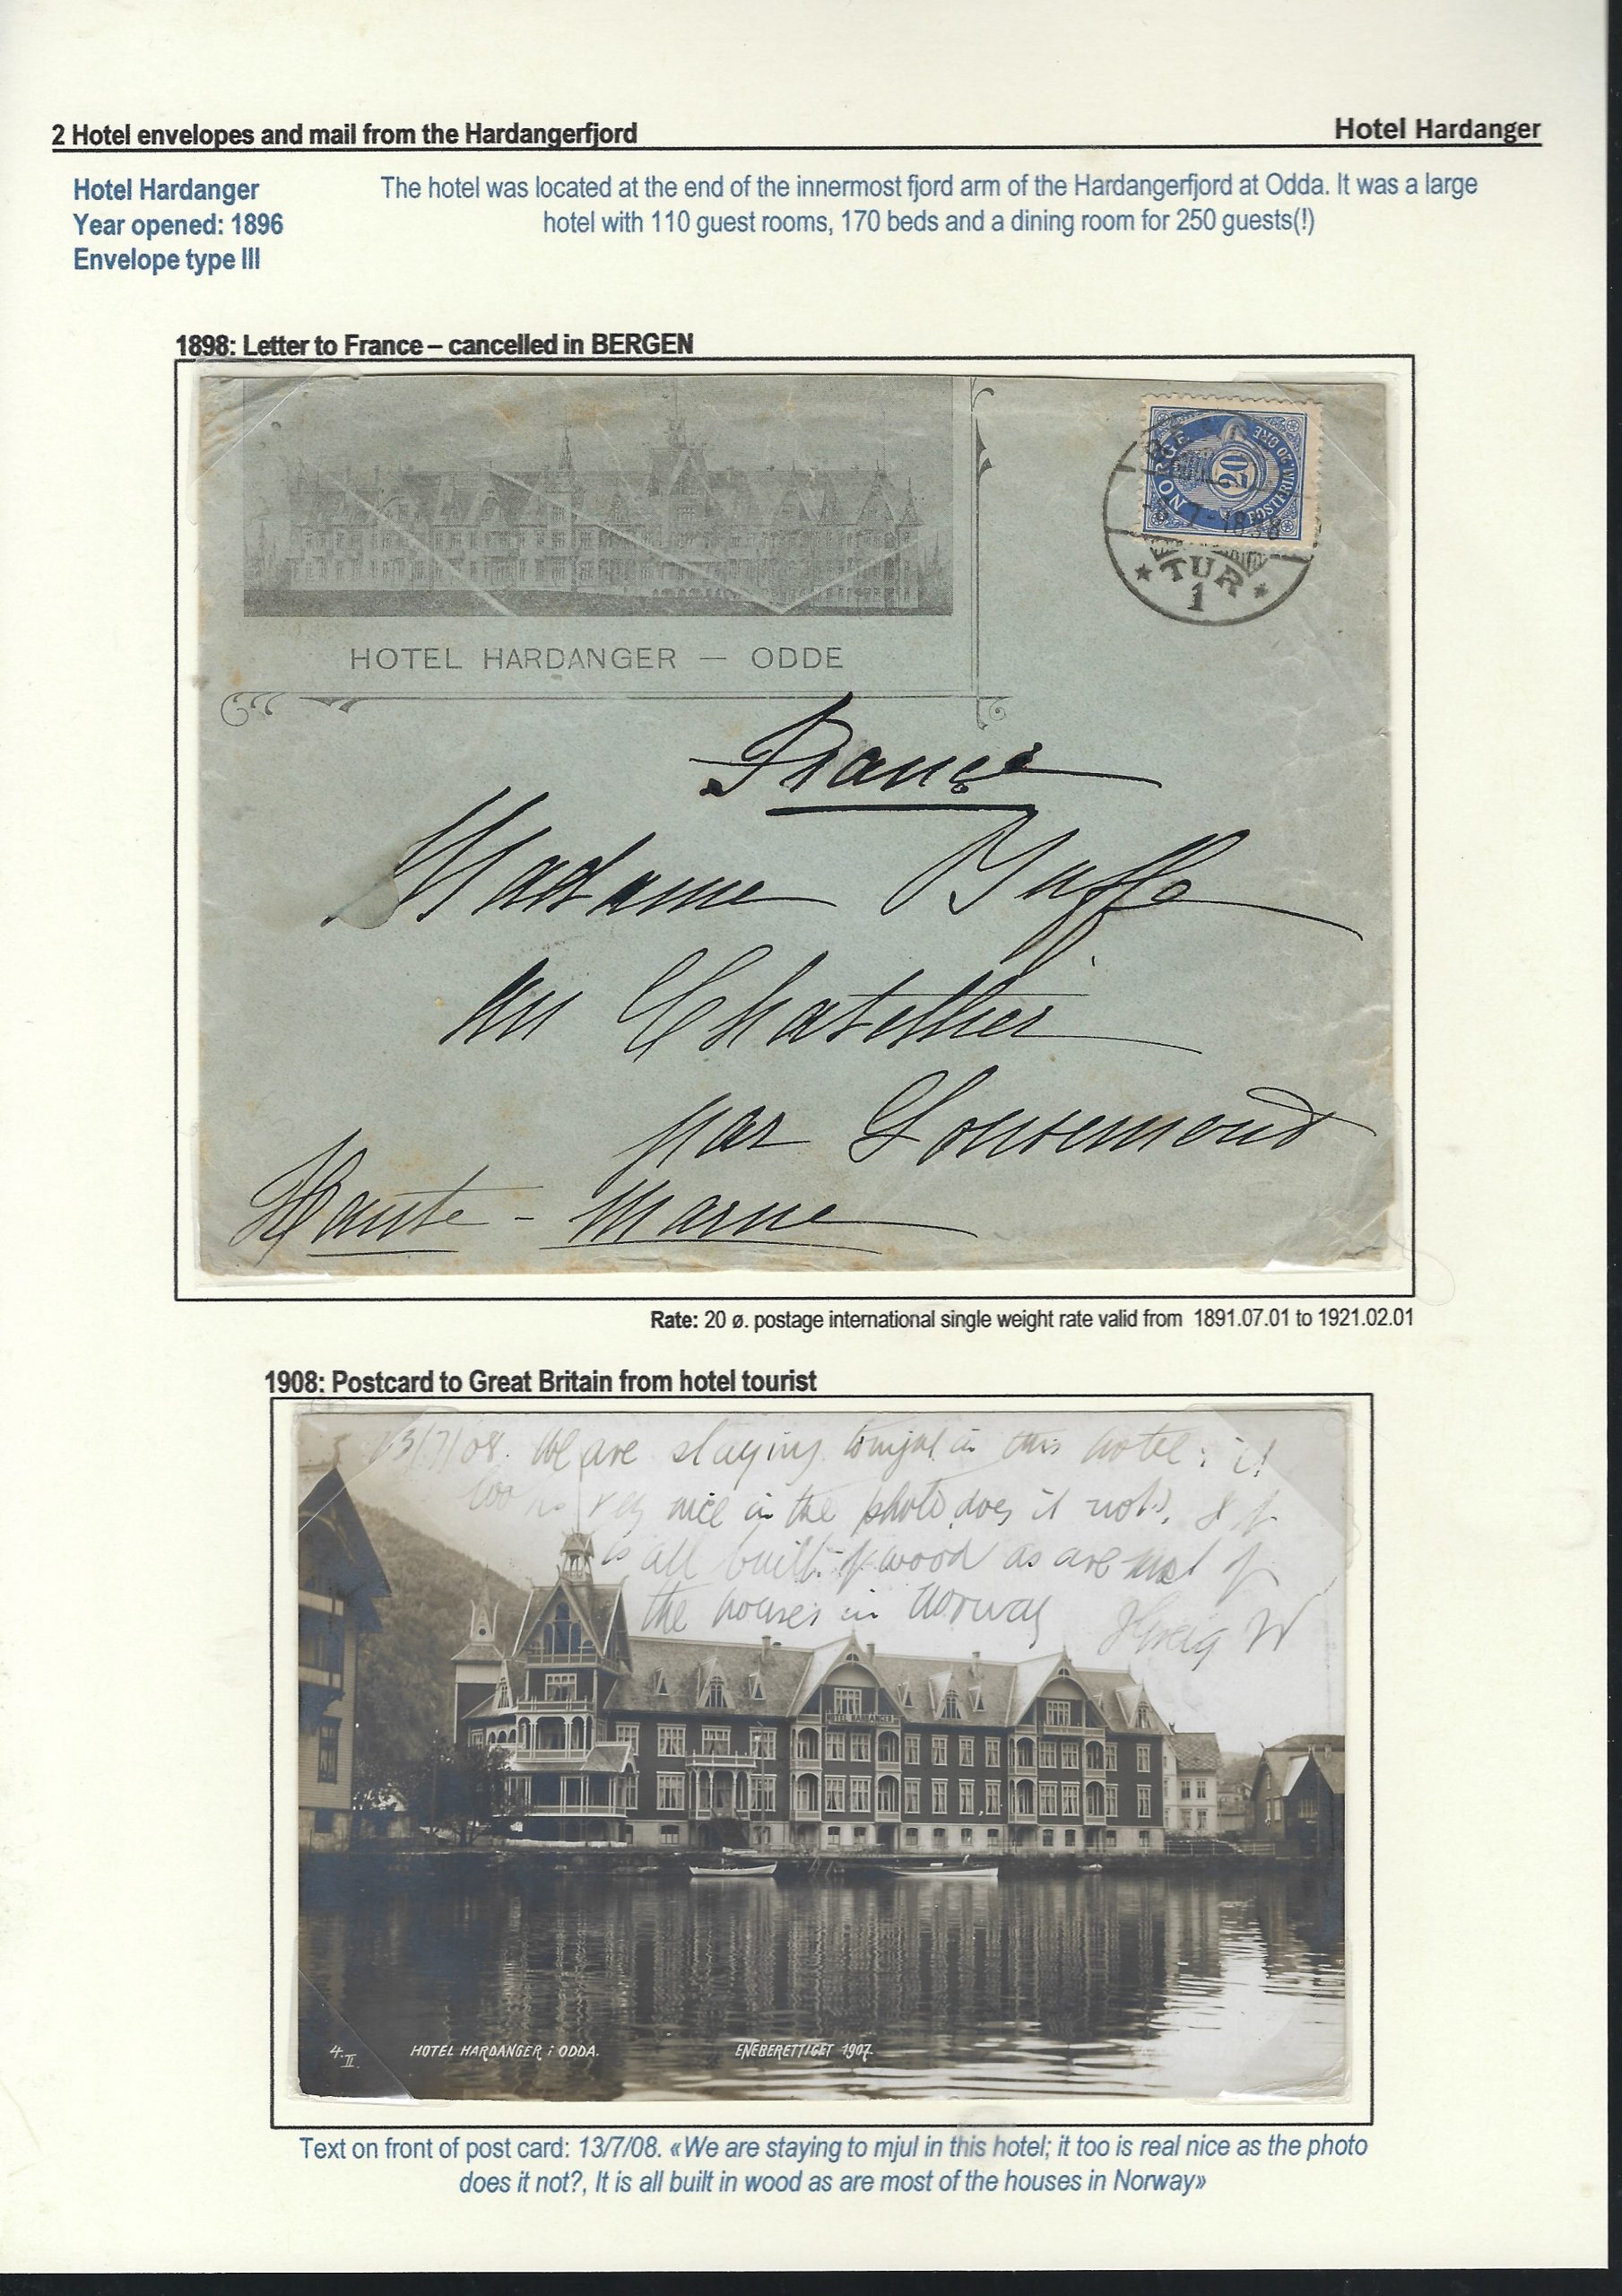 2 Hotel envelopes and mail from the Hardangerfjord
Hotel Hardanger
Hotel Hardanger
Year opened: 1896
Envelope type III
The hotel was located at the end of the innermost fjord arm of the Hardangerfjord at Odda. It was a large
hotel with 110 guest rooms, 170 beds and a dining room for 250 guests(!)
1898: Letter to France – cancelled in BERGEN
NORGE
20
POSTFRIM 20 ØRE
7-1898
TUR
1
HOTEL HARDANGER — ODDE
France
Madame
au Chatellier
par
Haute - Marne
Rate: 20 ø. postage international single weight rate valid from 1891.07.01 to 1921.02.01
1908: Postcard to Great Britain from hotel tourist
13/7/08. We are staying tonight in this hotel; it
looks very nice in the photo, does it not?, It
is all built of wood as are most of
the houses in Norway
HOTEL HARDANGER
4.II. HOTEL HARDANGER i ODDA. ENEBERETTIGET 1907.
Text on front of post card: 13/7/08. «We are staying to mjul in this hotel; it too is real nice as the photo
does it not?, It is all built in wood as are most of the houses in Norway»